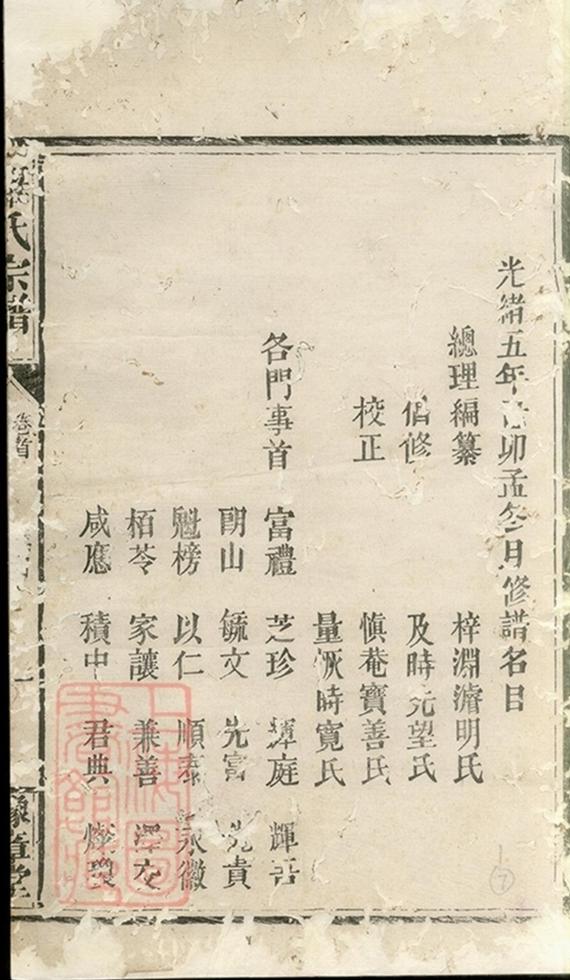 光緒五年卯孟冬月修譜名目
總理編纂 梓淵濬明氏
倡修 及時元望氏
校正 慎菴寶善氏
量恢時寬氏
各門事首 富禮 芝珍 庭 輝吾
朗山 毓文 先富 先貴
魁榜 以仁 順泰 永徽
栢苓 家讓 兼善 澤
咸應 積中 君典
氏宗譜
卷首
一
堂
7